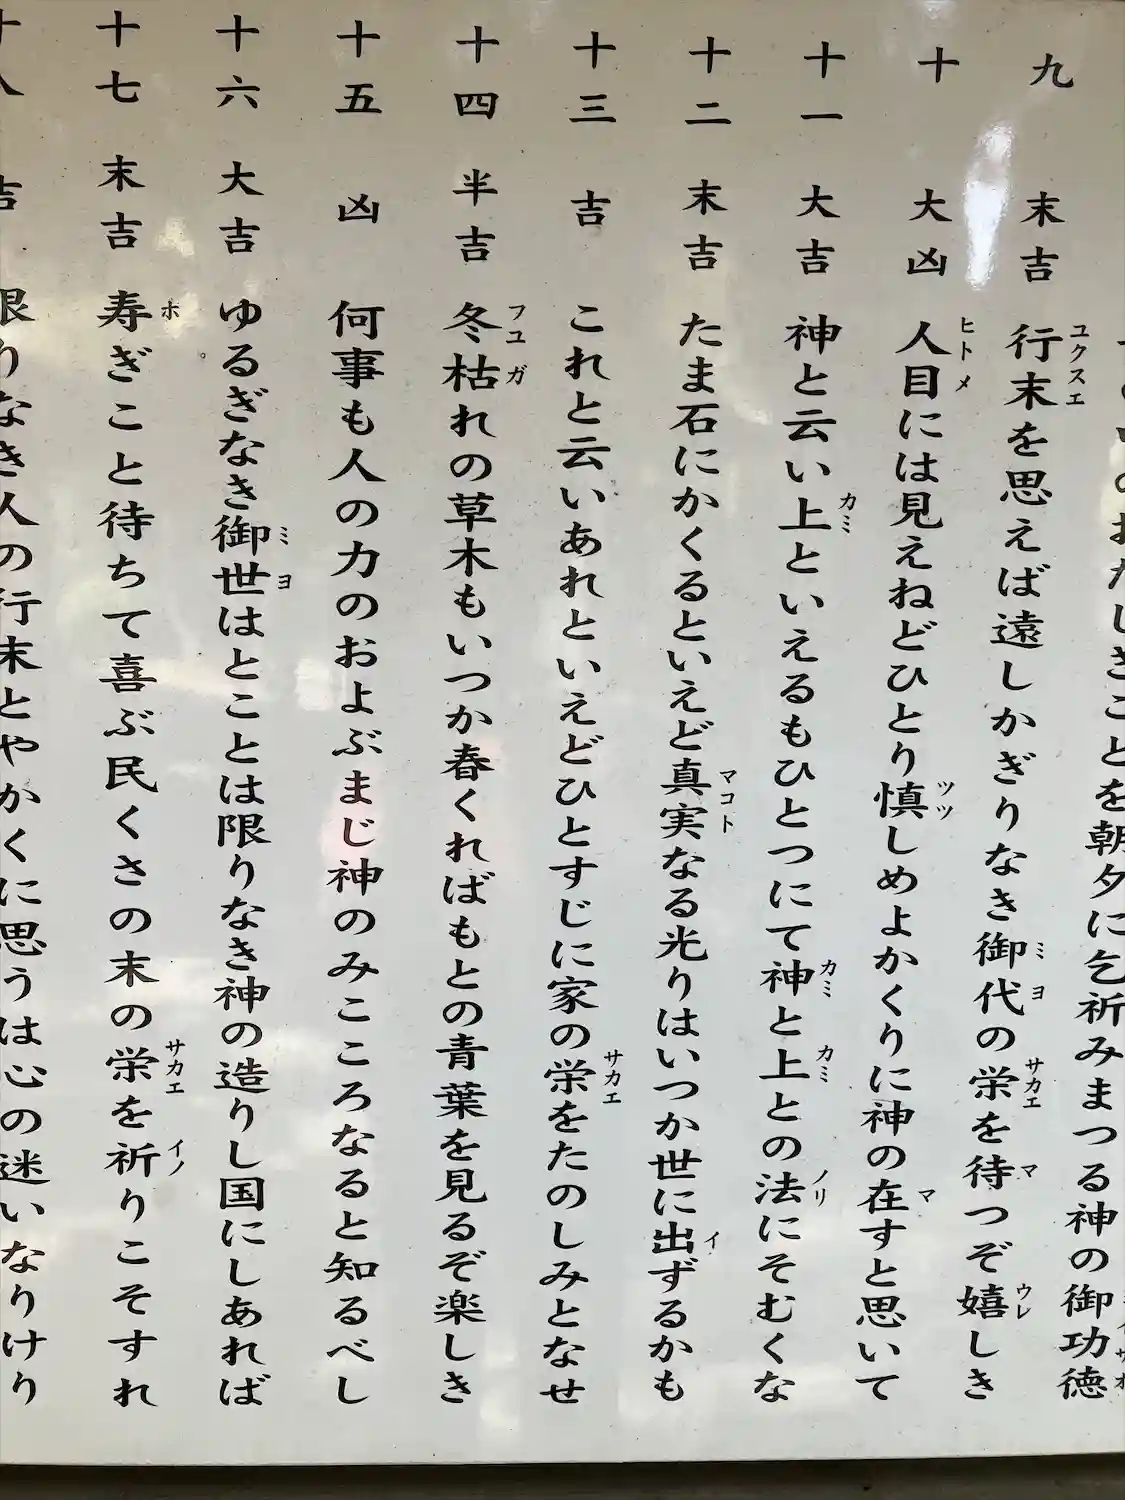 のおたしきことを朝夕に乞祈みまつる神の御功徳
九 末吉 行末を思えば遠しかぎりなき御代の栄を待つぞ嬉しき
ユクスエ ミヨ サカエ マ ウレ
十 大凶 人目には見えねどひとり慎しめよかくりに神の在すと思いて
ヒトメ ツツ マ
十一 大吉 神と云い上といえるもひとつにて神と上との法にそむくな
カミ カミ カミ ノリ
十二 末吉 たま石にかくるといえど真実なる光りはいつか世に出ずるかも
マコト イ
十三 吉 これと云いあれといえどひとすじに家の栄をたのしみとなせ
サカエ
十四 半吉 冬枯れの草木もいつか春くればもとの青葉を見るぞ楽しき
フユガ
十五 凶 何事も人の力のおよぶまじ神のみこころなると知るべし
十六 大吉 ゆるぎなき御世はとことは限りなき神の造りし国にしあれば
ミヨ
十七 末吉 寿ぎこと待ちて喜ぶ民くさの末の栄を祈りこそすれ
ホ サカエ イノ
十八 吉 限りなき人の行末とやかくに思うは心の迷いなりけり